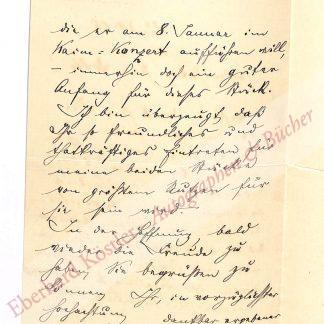 die er am 8. Januar im
Kaim-Konzert aufführen will,
– immerhin doch ein guter
Anfang für dieses Stück.
Ich bin überzeugt daß
Ihr so freundliches und
thatkräftiges Eintreten für
meine beiden Stücke
von größtem Nutzen für
sie sein wird.
In der Hoffnung bald
wieder die Freude zu
haben Sie begrüßen zu
können Ihr, in vorzüglichster
Hochachtung
dankbar ergebener
Eberhard Köstler Autographen & Bücher